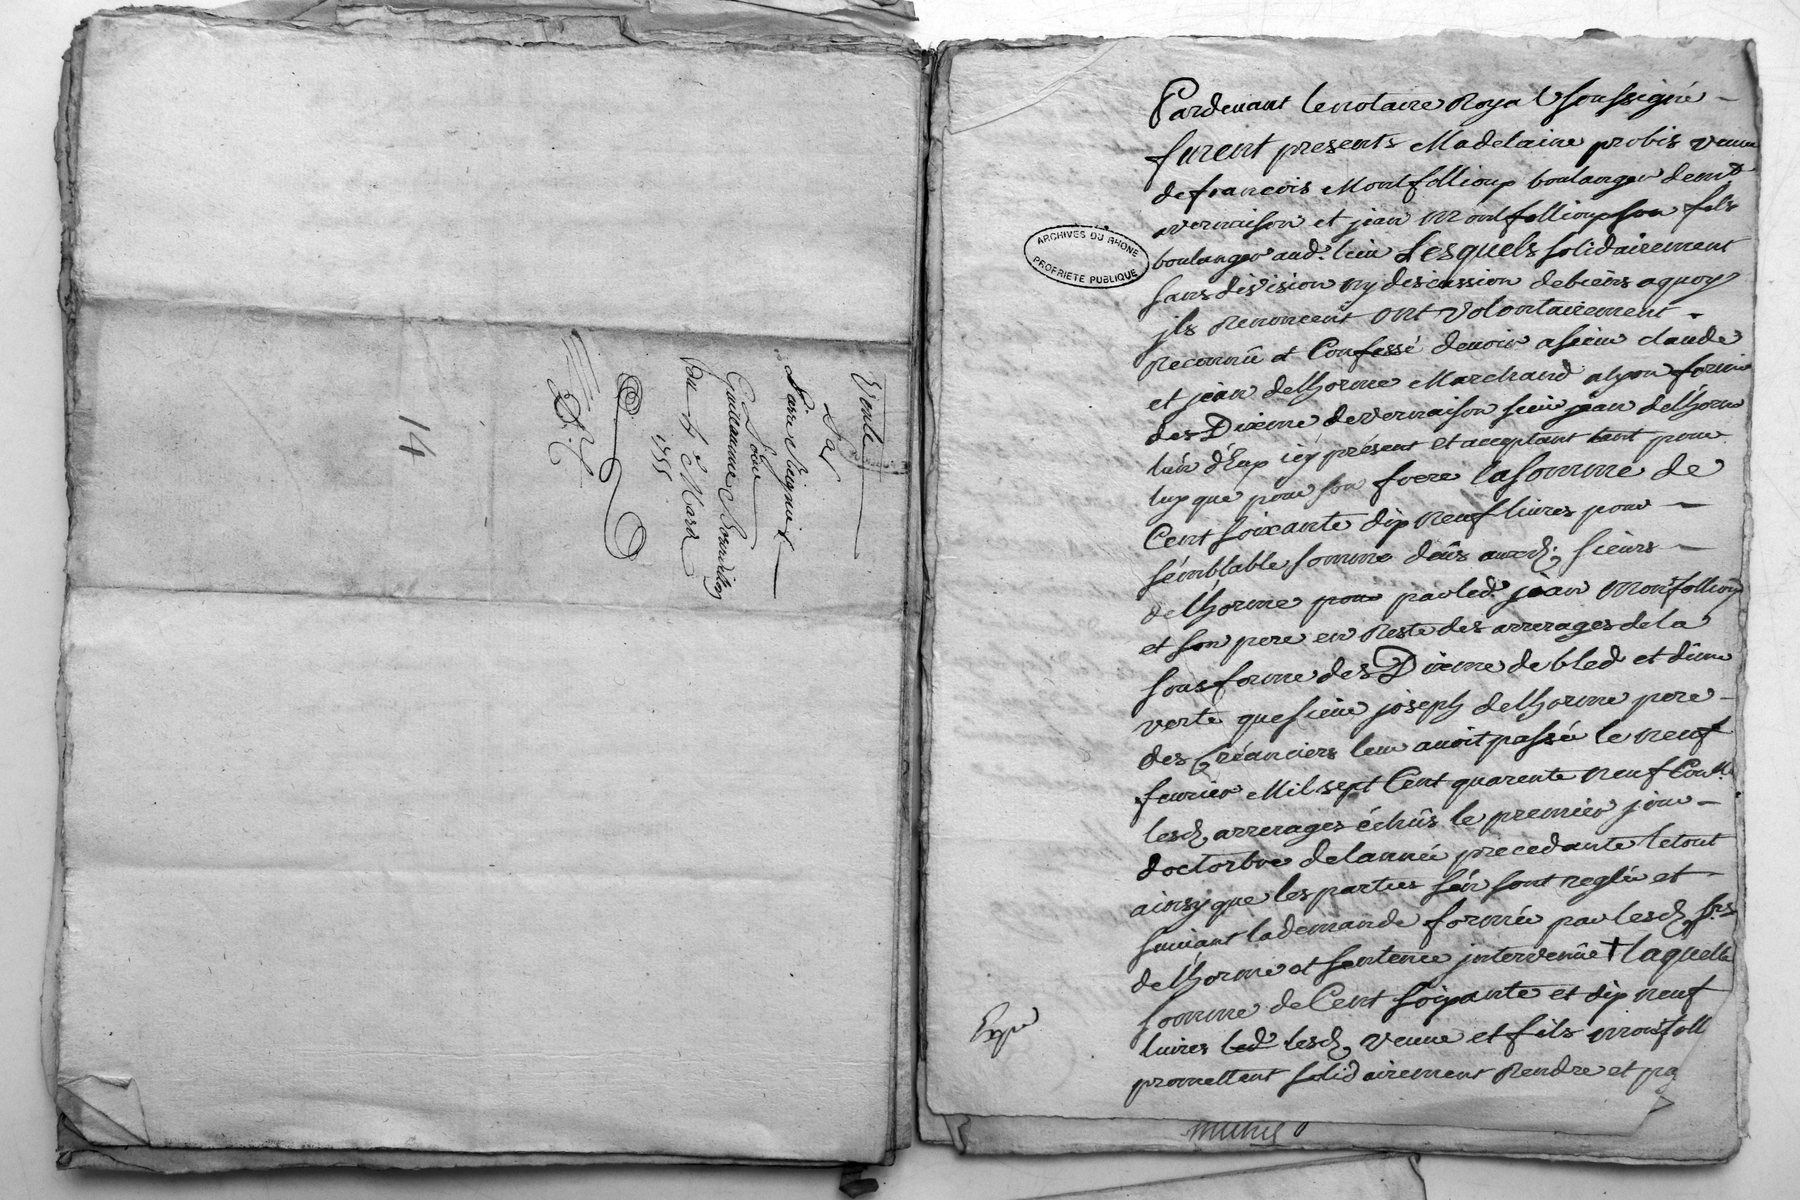 Vente
Par
Pierre Seignier
à Sieur
Guillaume
Du 4e Mars
1755
D. C.
14
ARCHIVES DU RHONE
PROPRIETE PUBLIQUE
Pardevant le notaire Royal soussigné
furent presents Madelaine probis veuve
de francois Montfollioux boulanger demt
a vernaison et jean Montfollioux son fils
boulanger aud. lieu Lesquels solidairement
sans division ny discussion de biens a quoy
jls renoncent ont volontairement
reconnû et Confessé devoir a sieur claude
et jean delhorme Marchand a lyon fermier
des Dixme de vernaison sieur jean delhorme
l'un d'Eux icy présent et acceptant tant pour
luy que pour son frere la somme de
Cent soixante dix neuf livres pour
sémblable somme deüs auxd. sieurs
delhorme pour par led. jean Montfollioux
et son pere en Reste des arrerages de la
sous ferme des Dixme de bled et dime
verte que sieur joseph delhorme pere
des Créanciers leur avoit passée le neuf
fevrier Mil sept Cent quarente neuf
lesd. arrerages échûs le premier jour
doctorbre de lannée précedante le tout
ainsy que les parties sén sont reglée et
suivant la demande formée par lesd. srs
delhorme et sentence jntervenûe + laquelle
somme de Cent soixante et dix neuf
livres led lesd. veuve et fils montfoll
promettent solidairement Rendre et pa